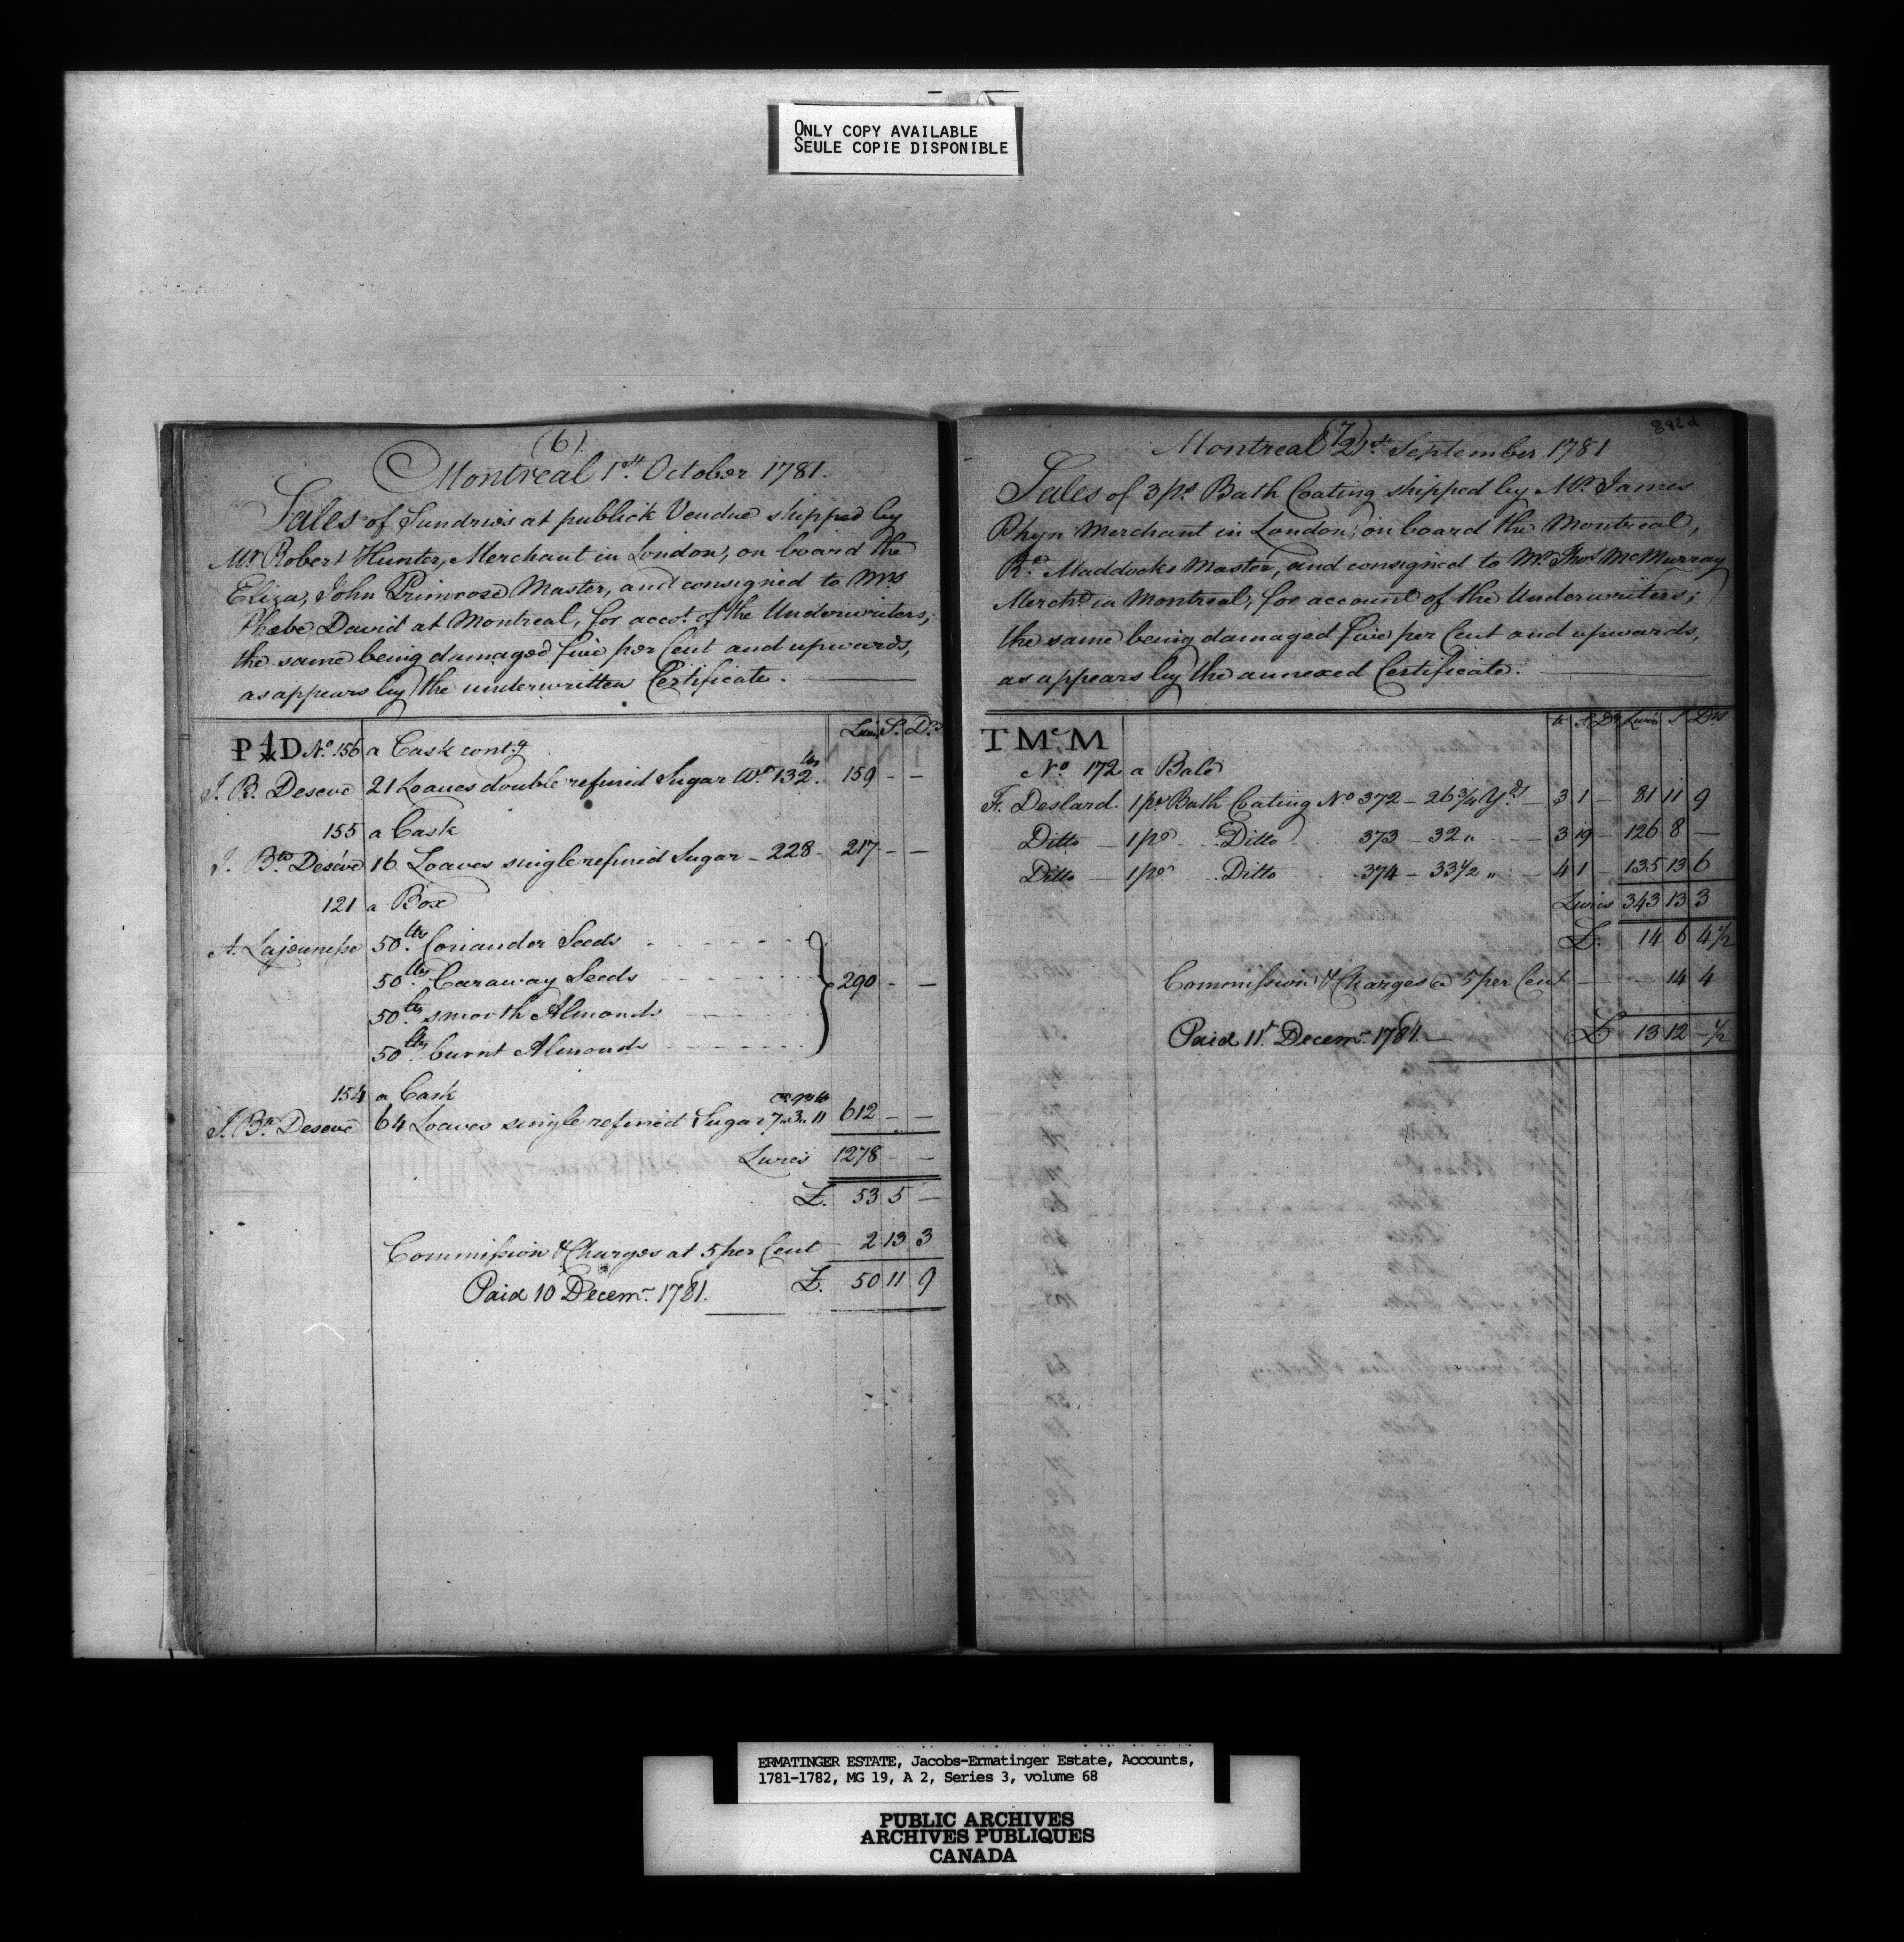 ONLY COPY AVAILABLE
SEULE COPIE DISPONIBLE
(6)
Montreal 1st. October 1781.
Sales of Sundries at publick Vendue shipped by
Mr Robert Hunter, Merchant in London, on board the
Eliza, John Primrose Master, and consigned to Mrs
Phœbe David at Montreal, for accot. of the Underwriters;
the same being damaged five per Cent and upwards,
as appears by the underwritten Certificate.
Livres S. Ds
P D No. 156 a Cask contg
J. B. Deseve 21 Loaves double refined Sugar Wt. 132 lbs. 159 - -
155 a Cask
J. Bte. Deséve 16 Loaves single refined Sugar - 228 - 217 - -
121 a Box
A. Lajeunesse 50 lbs. Coriander Seeds
50 lbs. Caraway Seeds 290 - -
50 lbs. smooth Almonds
50 lbs. burnt Almonds
154 a Cask
J. Bte. Deseve 64 Loaves single refined Sugar 7 " 3 " 11 612 - -
Livres 1278 - -
£. 53 5 -
Commission & Charges at 5 per Cent 2 13 3
Paid 10 Decemr. 1781. £. 50 11 9
892d
(7)
Montreal 21st. September 1781
Sales of 3 ps. Bath Coating shipped by Mr. James
Phyn Merchant in London, on board the Montreal,
Rd. Maddocks Master, and consigned to Mr. Thos. McMurray
Mercht. in Montreal, for account of the Underwriters;
the same being damaged five per Cent and upwards,
as appears by the annexed Certificate.
S. Ds Livres S Ds
T McM
No. 172 a Bale
Fr. Deslard. 1 pe. Bath Coating No 372 - 26 3/4 Yds - 3 1 - 81 11 9
Ditto - 1 pe. Ditto 373 - 32 " - 3 19 - 126 8 -
Ditto - 1 pe. Ditto 374 - 33 1/2 " - 4 1 - 135 13 6
Livres 343 13 3
£. 14 6 4 1/2
Commission & Charges @ 5 per Cent - - 14 4
Paid 11t. Decemr. 1781. - £ 13 12 - 1/2
ERMATINGER ESTATE, Jacobs-Ermatinger Estate, Accounts,
1781-1782, MG 19, A 2, Series 3, volume 68
PUBLIC ARCHIVES
ARCHIVES PUBLIQUES
CANADA